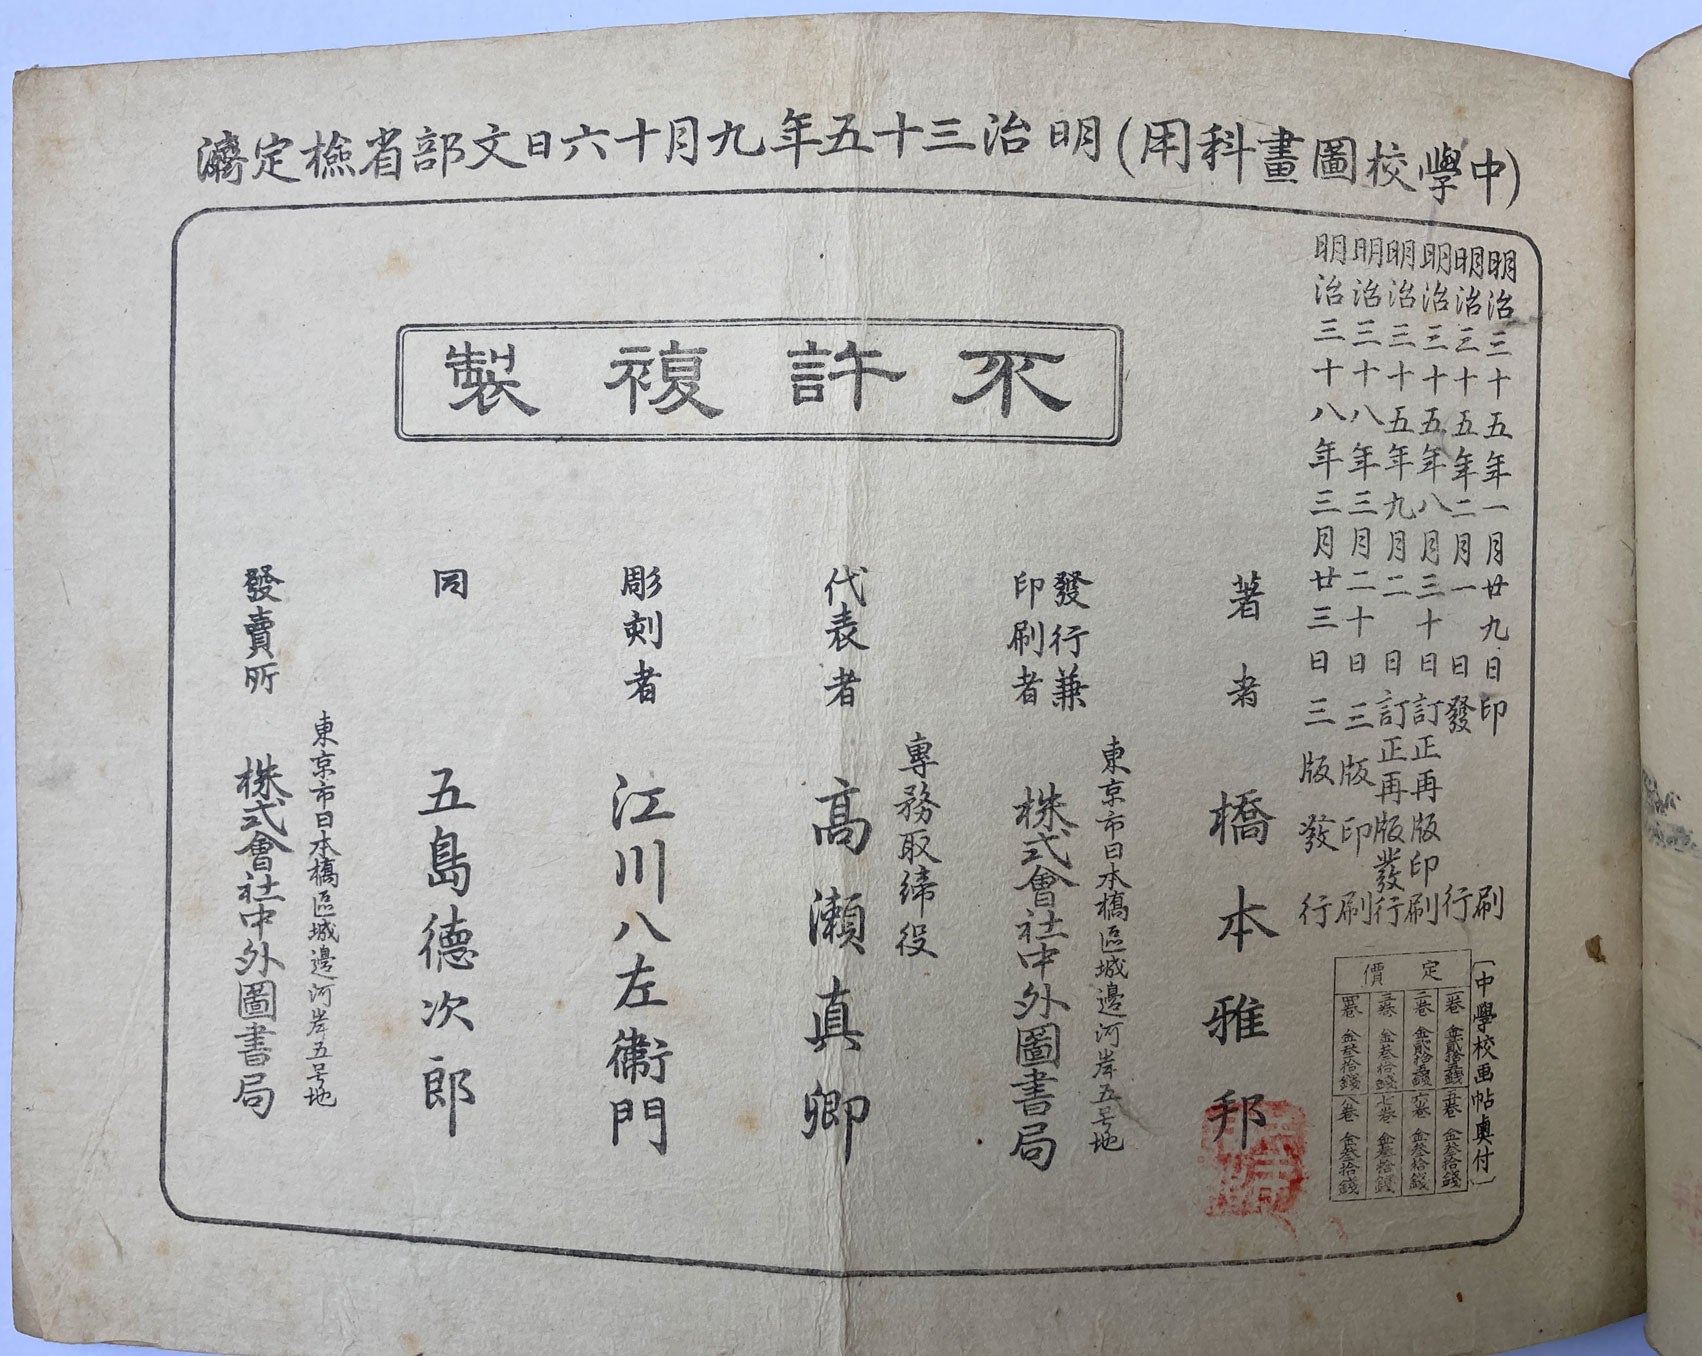 (中學校圖畫科用)明治三十五年九月十六日文部省檢定濟
明治三十五年一月廿九日印刷
明治三十五年二月一日發行
明治三十五年八月三十日訂正再版印刷
明治三十五年九月二日訂正再版發行
明治三十八年三月二十日三版印刷
明治三十八年三月廿三日三版發行
〔中學校画帖奧付〕
定價
一巻 金貳拾五錢
二巻 金貳拾五錢
三巻 金叄拾錢
四巻 金叄拾錢
五巻 金叄拾錢
六巻 金叄拾錢
七巻 金叄拾錢
八巻 金叄拾錢
不許複製
著者 橋本雅邦
東京市日本橋區城邊河岸五号地
發行兼印刷者 株式會社中外圖書局
專務取締役
代表者 高瀬真卿
彫刻者 江川八左衞門
同 五島德次郎
東京市日本橋區城邊河岸五号地
發賣所 株式會社中外圖書局